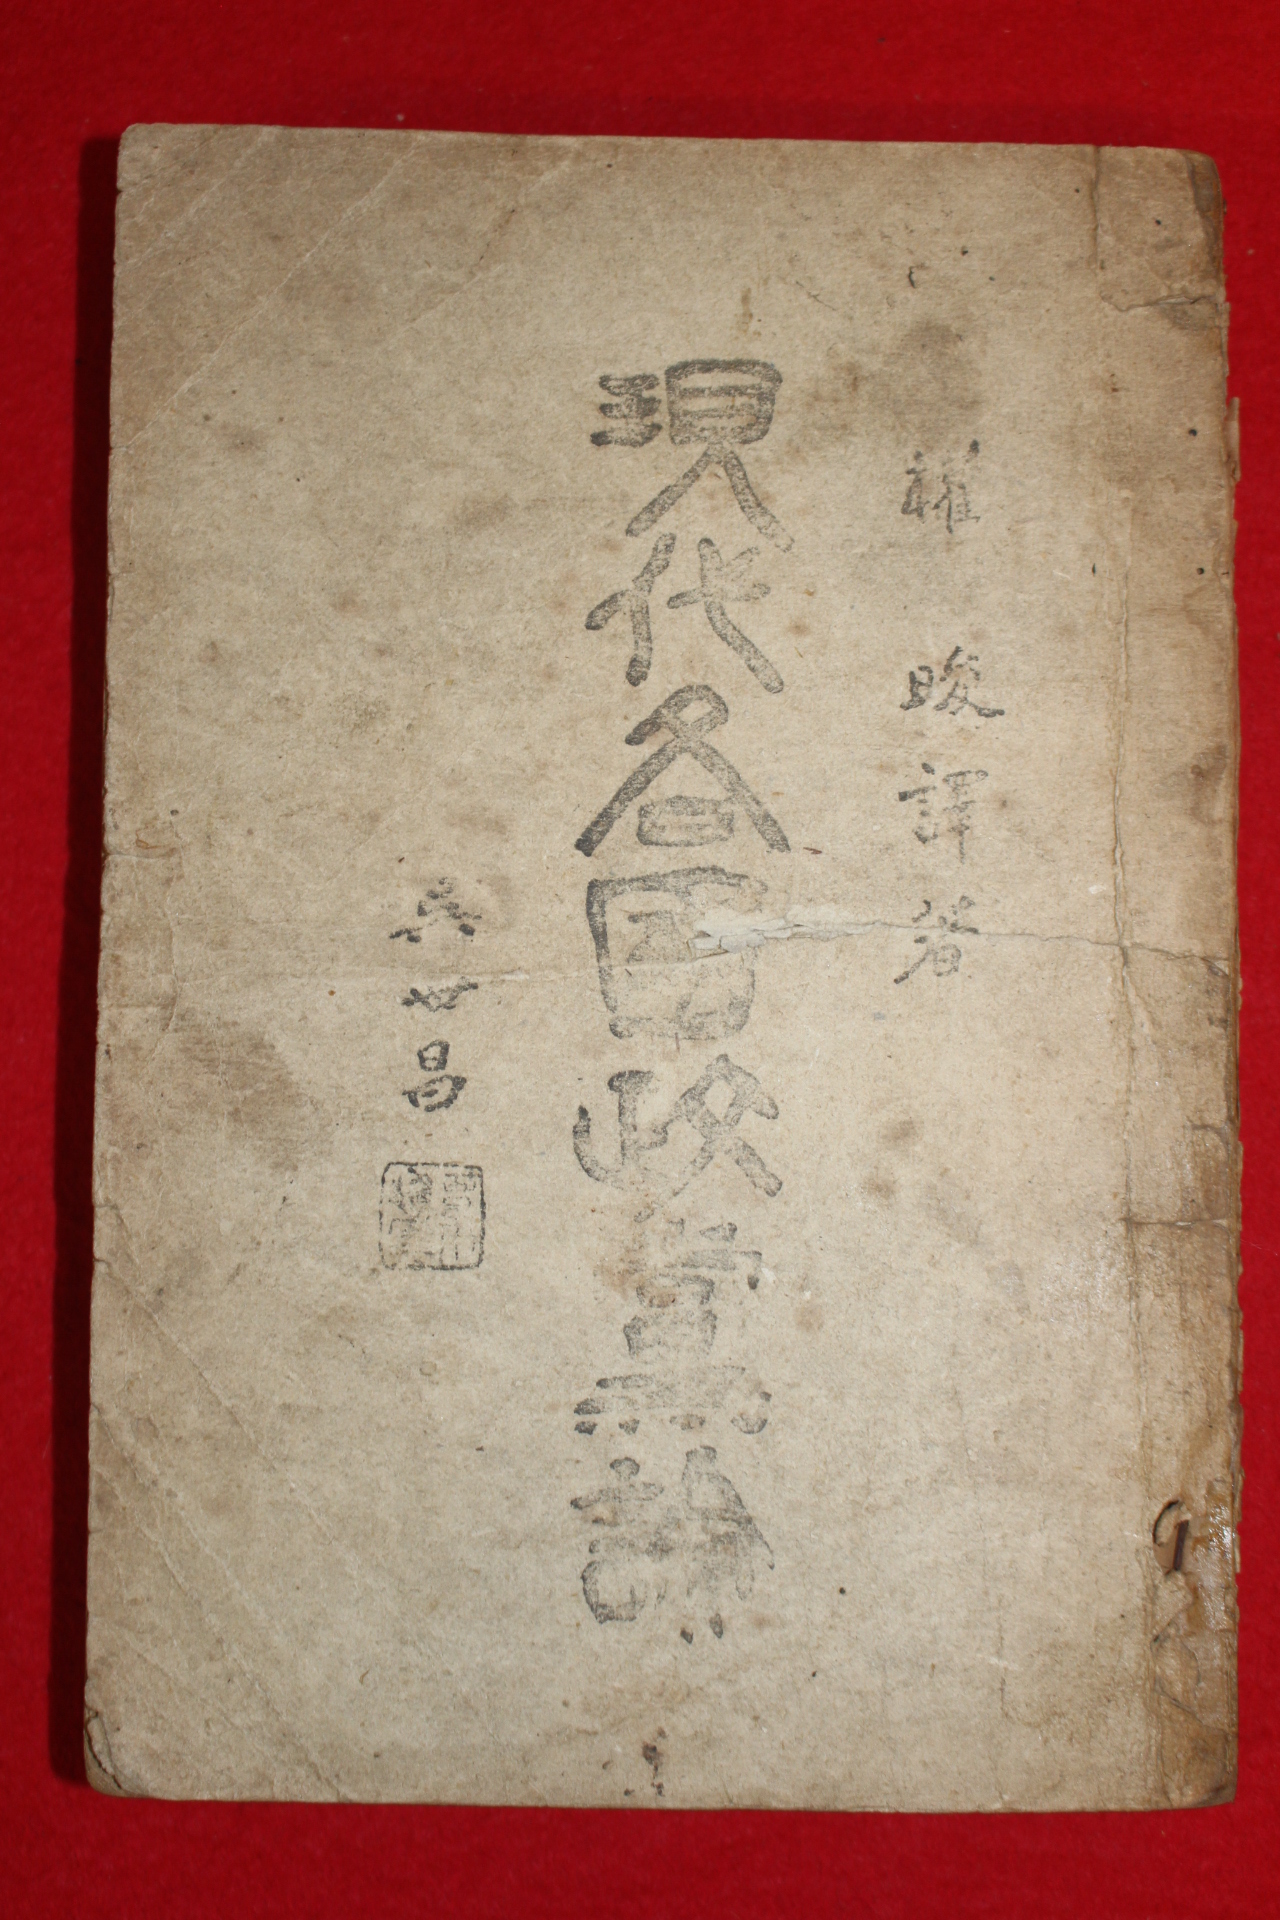 權 晙 譯 著
現代各國政黨論
吳世昌